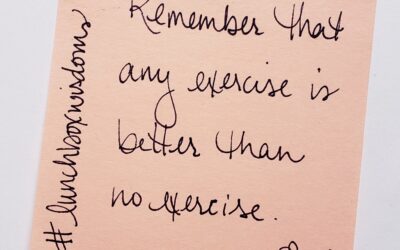 Remember that
any exercise is
better than
no exercise.
#lunchboxwisdoms